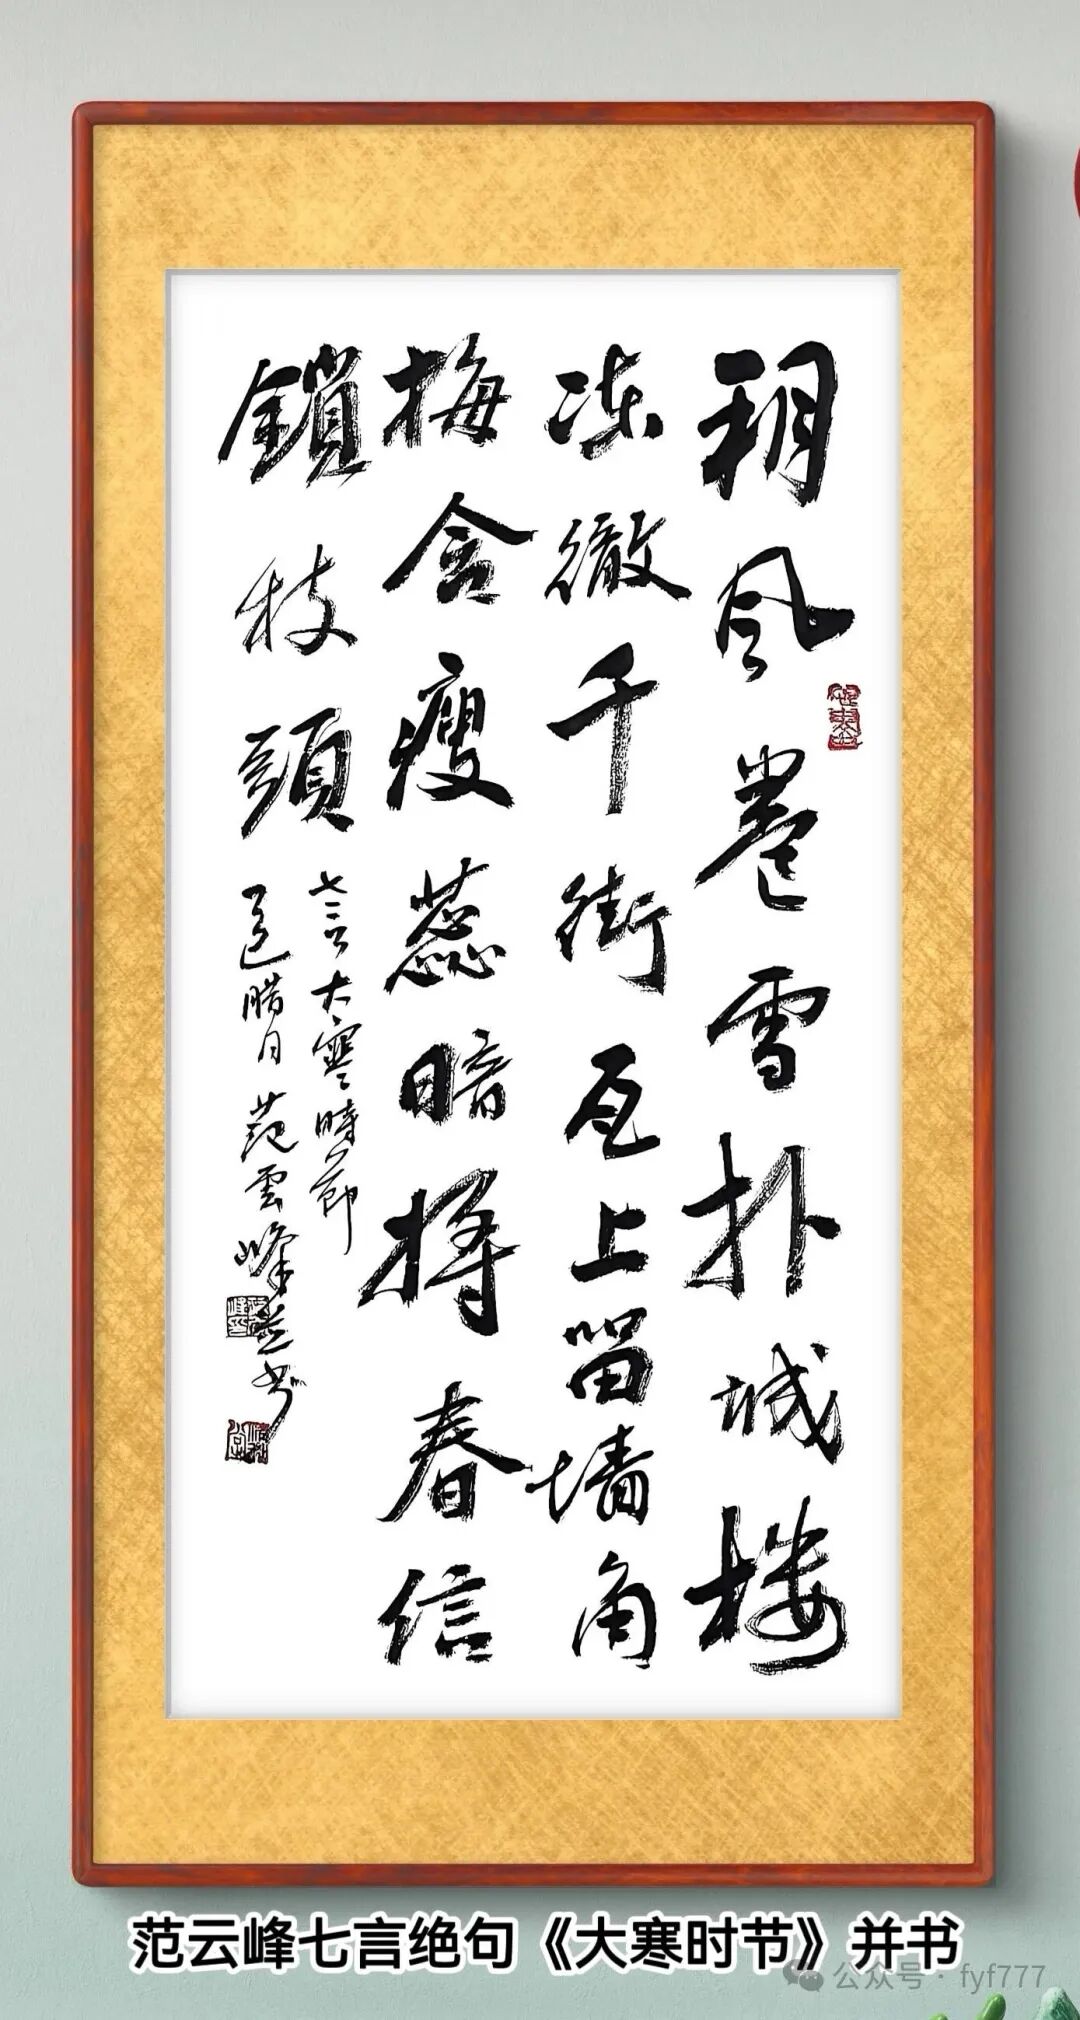 朔风卷雪扑城楼
冻徹千街瓦上留墙角
梅含瘦蕊暗将春信
鎖枝頭
七言大寒時節
乙巳腊月范雲峰并书
范云峰七言绝句《大寒时节》并书
公众号 · fyf777